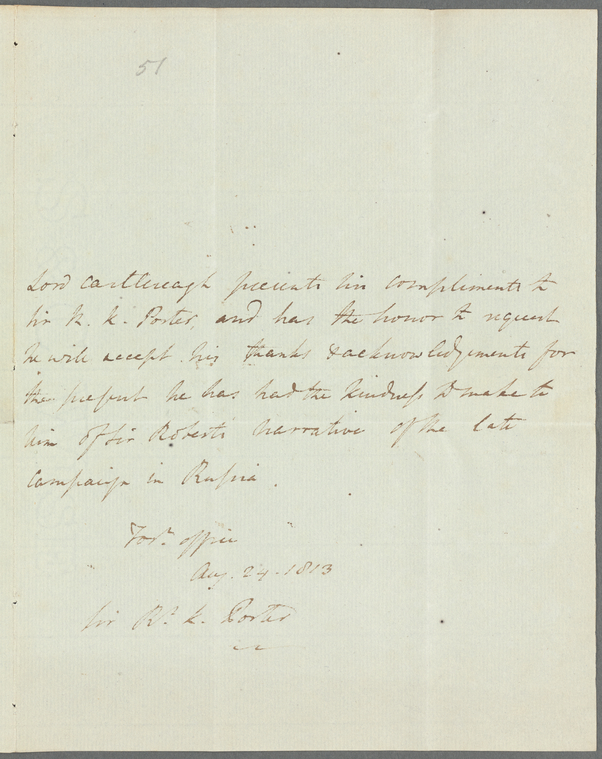 51
Lord Castlereagh presents his compliments to
Sir R. K. Porter, and has the honor to request
he will accept his thanks & acknowledgements for
the present he has had the kindness to make to
him of Sir Roberts narrative of the late
Campaign in Russia.
Forn. Office
Aug. 24. 1813
Sir Rt. K. Porter